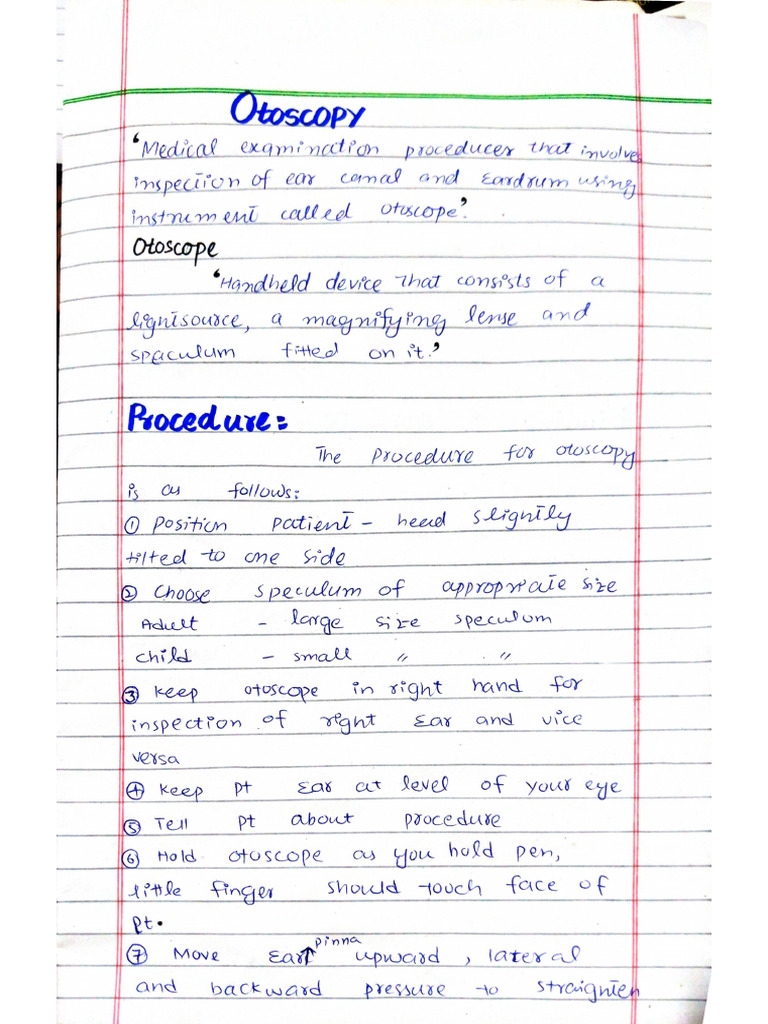 Otoscopy
'Medical examination proceducer that involves
inspection of ear canal and Eardrum using
instrument called otoscope'.
Otoscope
'Handheld device that consists of a
lightsource, a magnifying lense and
speculum fitted on it.'
Procedure:
The Procedure for otoscopy
is as follows:
① Position patient - head slightly
tilted to one side
② Choose speculum of appropriate size
Adult - large size speculum
child - small " "
③ Keep otoscope in right hand for
inspection of right Ear and vice
versa
④ Keep pt Ear at level of your eye
⑤ Tell pt about procedure
⑥ Hold otoscope as you hold pen,
little finger should touch face of
Pt.
pinna
⑦ Move Ear↑ upward, lateral
and backward pressure to straighten